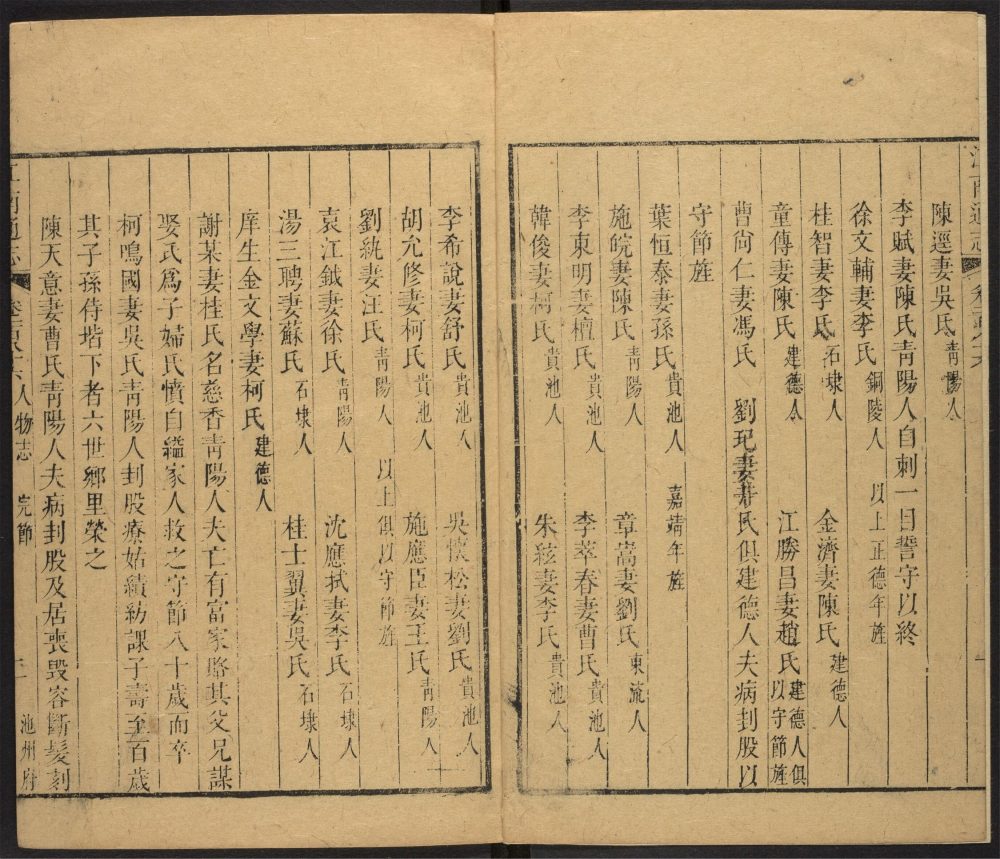 陳逕妻吳氏 青陽人
李賦妻陳氏青陽人自刺一目誓守以終
徐文輔妻李氏 銅陵人 以上正德年旌
桂智妻李氏 石埭人 金濟妻陳氏 建德人
童傳妻陳氏 建德人 江勝昌妻趙氏 建德人俱以守節旌
曹尙仁妻馮氏 劉玘妻 氏俱建德人夫病刲股以
守節旌
葉恒泰妻孫氏 貴池人 嘉靖年旌
施皖妻陳氏 青陽人 章嵩妻劉氏 東流人
李東明妻檀氏 貴池人 李萃春妻曹氏 貴池人
韓俊妻柯氏 貴池人 朱鉉妻李氏 貴池人
李希說妻舒氏 貴池人 吳懷松妻劉氏 貴池人
胡允修妻柯氏 貴池人 施應臣妻王氏 青陽人
劉統妻汪氏 青陽人 以上俱以守節旌
袁江鉞妻徐氏 青陽人 沈應拭妻李氏 石埭人
湯三聘妻蘇氏 石埭人 桂士翼妻吳氏 石埭人
庠生金文學妻柯氏 建德人
謝某妻桂氏名慈香青陽人夫亡有富家賂其父兄謀
娶氏爲子婦氏憤自縊家人救之守節八十歲而卒
柯鳴國妻吳氏青陽人刲股療姑績紡課子壽至百歲
其子孫侍堦下者六世鄉里榮之
陳天意妻曹氏青陽人夫病刲股及居喪毀容斷髮刻
人物志 完節 池州府